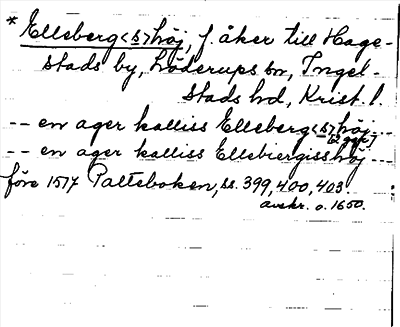 * Elleberg<s>höj, f. åker till Hage-
stads by, Löderups sn, Ingel-
stads hd, Krist. l.
-- en ager kalliss Elleberg<s>höj --
(2 ggr)
-- en ager kalliss Ellebiergisshöj --
före 1517 Palteboken, ss. 399, 400, 403.
avskr. o. 1650.